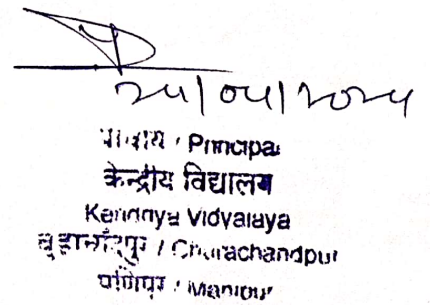 प्राचार्य / Principal
केन्द्रीय विद्यालय
Kendriya Vidyalaya
चुड़ाचाँदपुर / Churachandpur
मणिपुर / Manipur